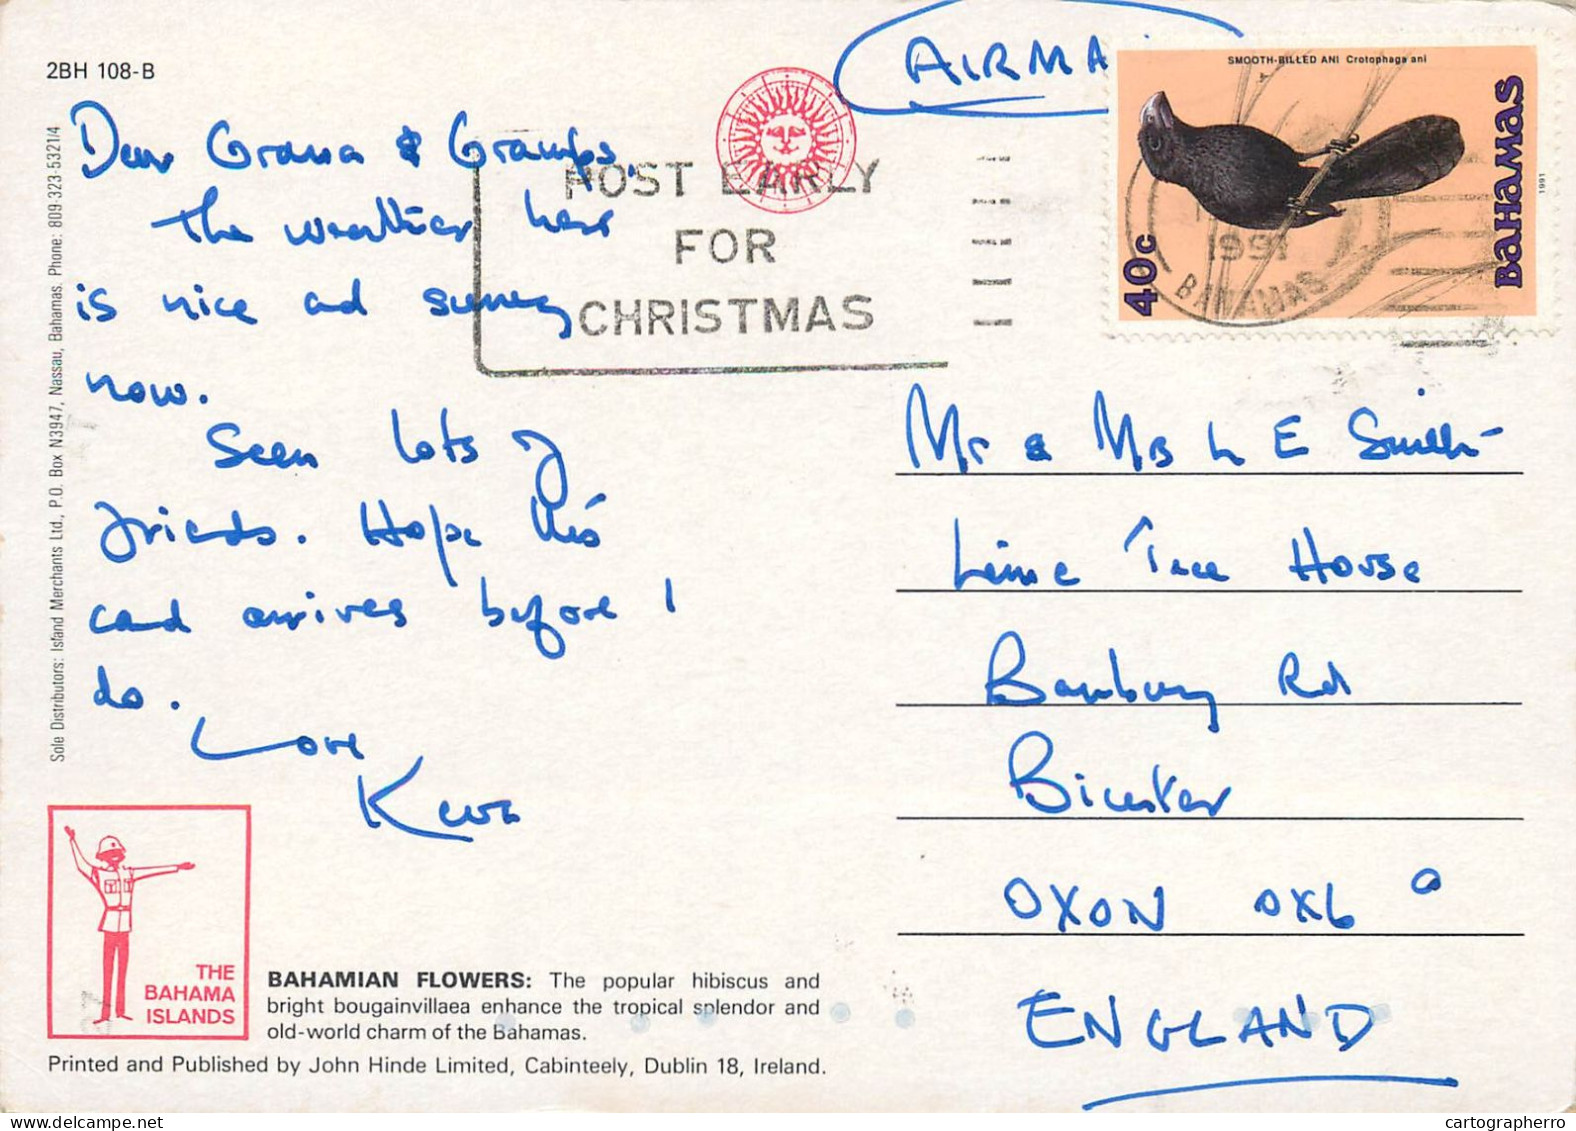 2BH 108-B
AIRMA
SMOOTH-BILLED ANI Crotophaga ani
BAHAMAS
1991
40c
1991
BAHAMAS
POST EARLY
FOR
CHRISTMAS
Dear Grana & Gramps,
The weather here
is nice and sunny
now.
Seen lots of
friends. Hope this
card arrives before I
do.
Love
Mr & Mrs L E Smith
Lime Tree House
Banbury Rd
Bicester
OXON OX6
ENGLAND
Sole Distributors: Island Merchants Ltd., P.O. Box N3947, Nassau, Bahamas. Phone: 809-323-5321/4
THE
BAHAMA
ISLANDS
BAHAMIAN FLOWERS: The popular hibiscus and
bright bougainvillaea enhance the tropical splendor and
old-world charm of the Bahamas.
Printed and Published by John Hinde Limited, Cabinteely, Dublin 18, Ireland.
cartographerro